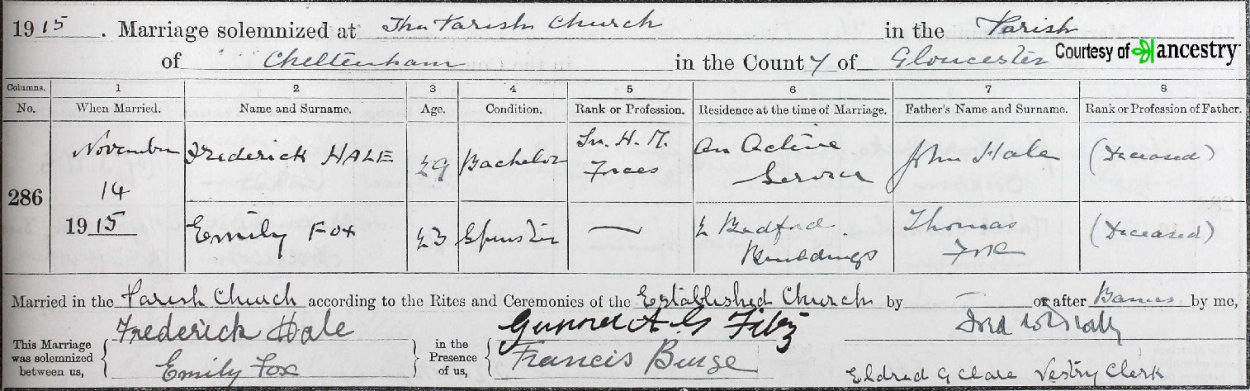 1915. Marriage solemnized at The Parish Church in the Parish
of Cheltenham in the County of Gloucester Courtesy of ancestry
Columns. 1 2 3 4 5 6 7 8
No. When Married. Name and Surname. Age. Condition. Rank or Profession. Residence at the time of Marriage. Father's Name and Surname. Rank or Profession of Father.
286
November
14
1915
Frederick HALE 29 Bachelor In. H. M. Forces On Active Service John Hale (Deceased)
Emily Fox 23 Spinster — 2 Bedford Buildings Thomas Fox (Deceased)
Married in the Parish Church according to the Rites and Ceremonies of the Established Church by — or after Banns by me,
Frederick Hale Gunner A G
This Marriage was solemnized between us, Emily Fox in the Presence of us, Francis Burge
Eldred G Clare Vestry Clerk